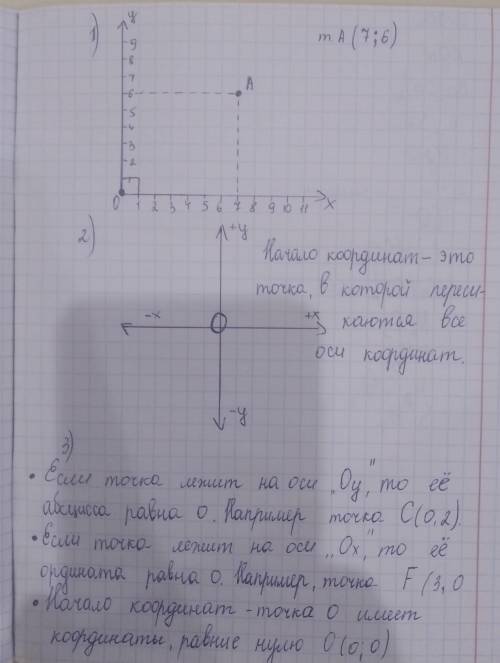 1)
т А (7;6)
y
9
8
7
6
A
5
4
3
2
1
0 1 2 3 4 5 6 7 8 9 10 11 x
2)
+y
Начало координат - это
точка, в которой переси-
-x +x каются все
оси координат.
-y
3)
• Если точка лежит на оси „Oy," то её
абсцисса равна 0. Например точка C(0,2).
• Если точка лежит на оси „Ox," то её
ордината равна 0. Например, точка F(3,0
• Начало координат - точка 0 имеет
координаты, равние нулю O(0;0)